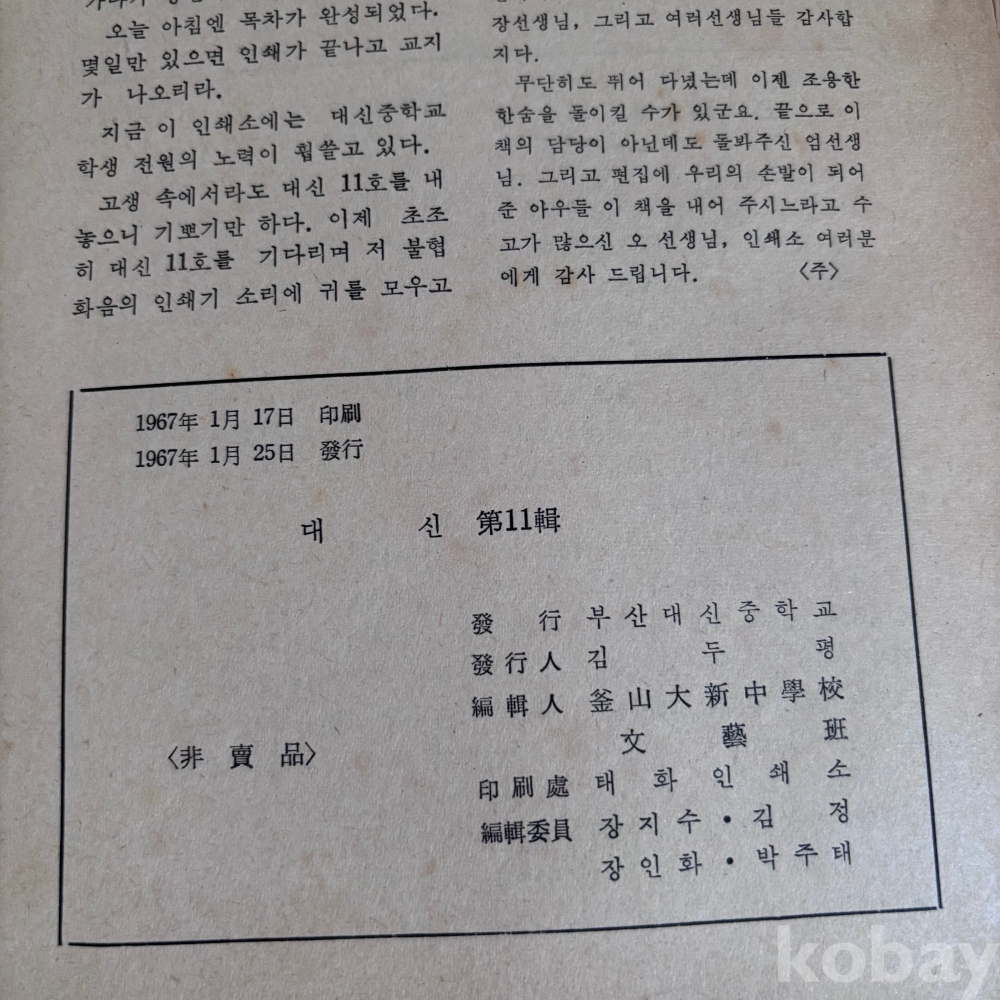 오늘 아침엔 목차가 완성되었다.
몇일만 있으면 인쇄가 끝나고 교지
가 나오리라.
지금 이 인쇄소에는 대신중학교
학생 전원의 노력이 휩쓸고 있다.
고생 속에서라도 대신 11호를 내
놓으니 기쁘기만 하다. 이제 초조
히 대신 11호를 기다리며 저 불협
화음의 인쇄기 소리에 귀를 모우고
장선생님, 그리고 여러선생님들 감사합
지다.
무단히도 뛰어 다녔는데 이젠 조용한
한숨을 돌이킬 수가 있군요. 끝으로 이
책의 담당이 아닌데도 돌봐주신 엄선생
님. 그리고 편집에 우리의 손발이 되어
준 아우들 이 책을 내어 주시느라고 수
고가 많으신 오 선생님, 인쇄소 여러분
에게 감사 드립니다. 〈주〉
1967年 1月 17日 印刷
1967年 1月 25日 發行
대 신 第11輯
發 行 부산대신중학교
發行人 김 두 평
編輯人 釜山大新中學校
文 藝 班
〈非 賣 品〉
印刷處 태화인쇄소
編輯委員 장지수・김 정
장인화・박주태
kobay